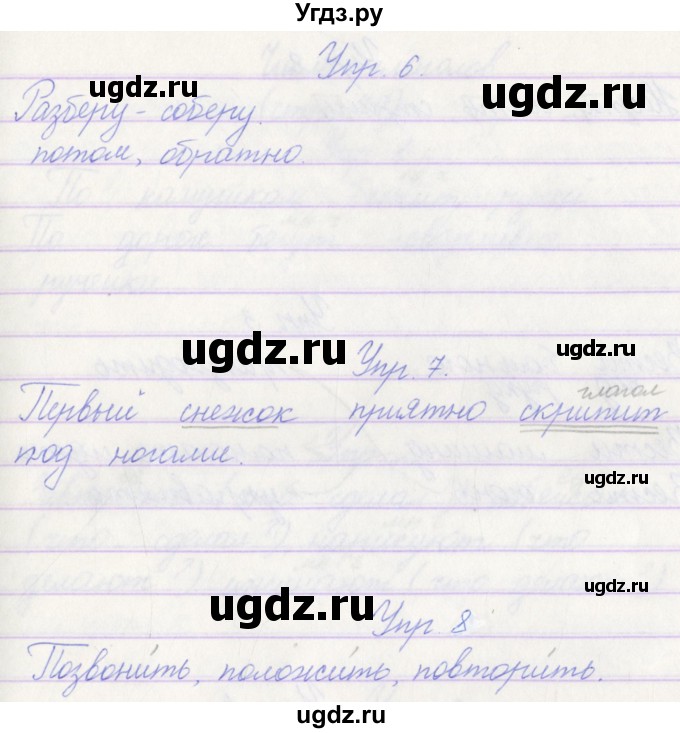 Угдз.ру
Упр. 6.
ugdz.ru
ugdz.ru
Разберу - соберу.
потом, обратно.
ugdz.ru
ugdz.ru
Упр. 7.
глагол
Первый снежок приятно скрипит
под ногами.
ugdz.ru
ugdz.ru
ugdz.ru
Упр. 8
Позвони́ть, положи́ть, повтори́ть.
ugdz.ru
ugdz.ru